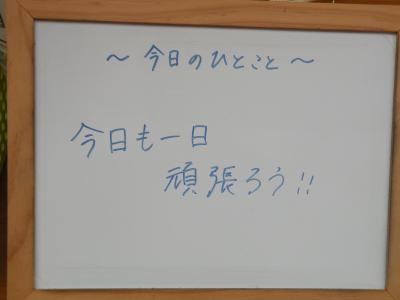 ～今日のひとこと～
今日も一日
頑張ろう!!